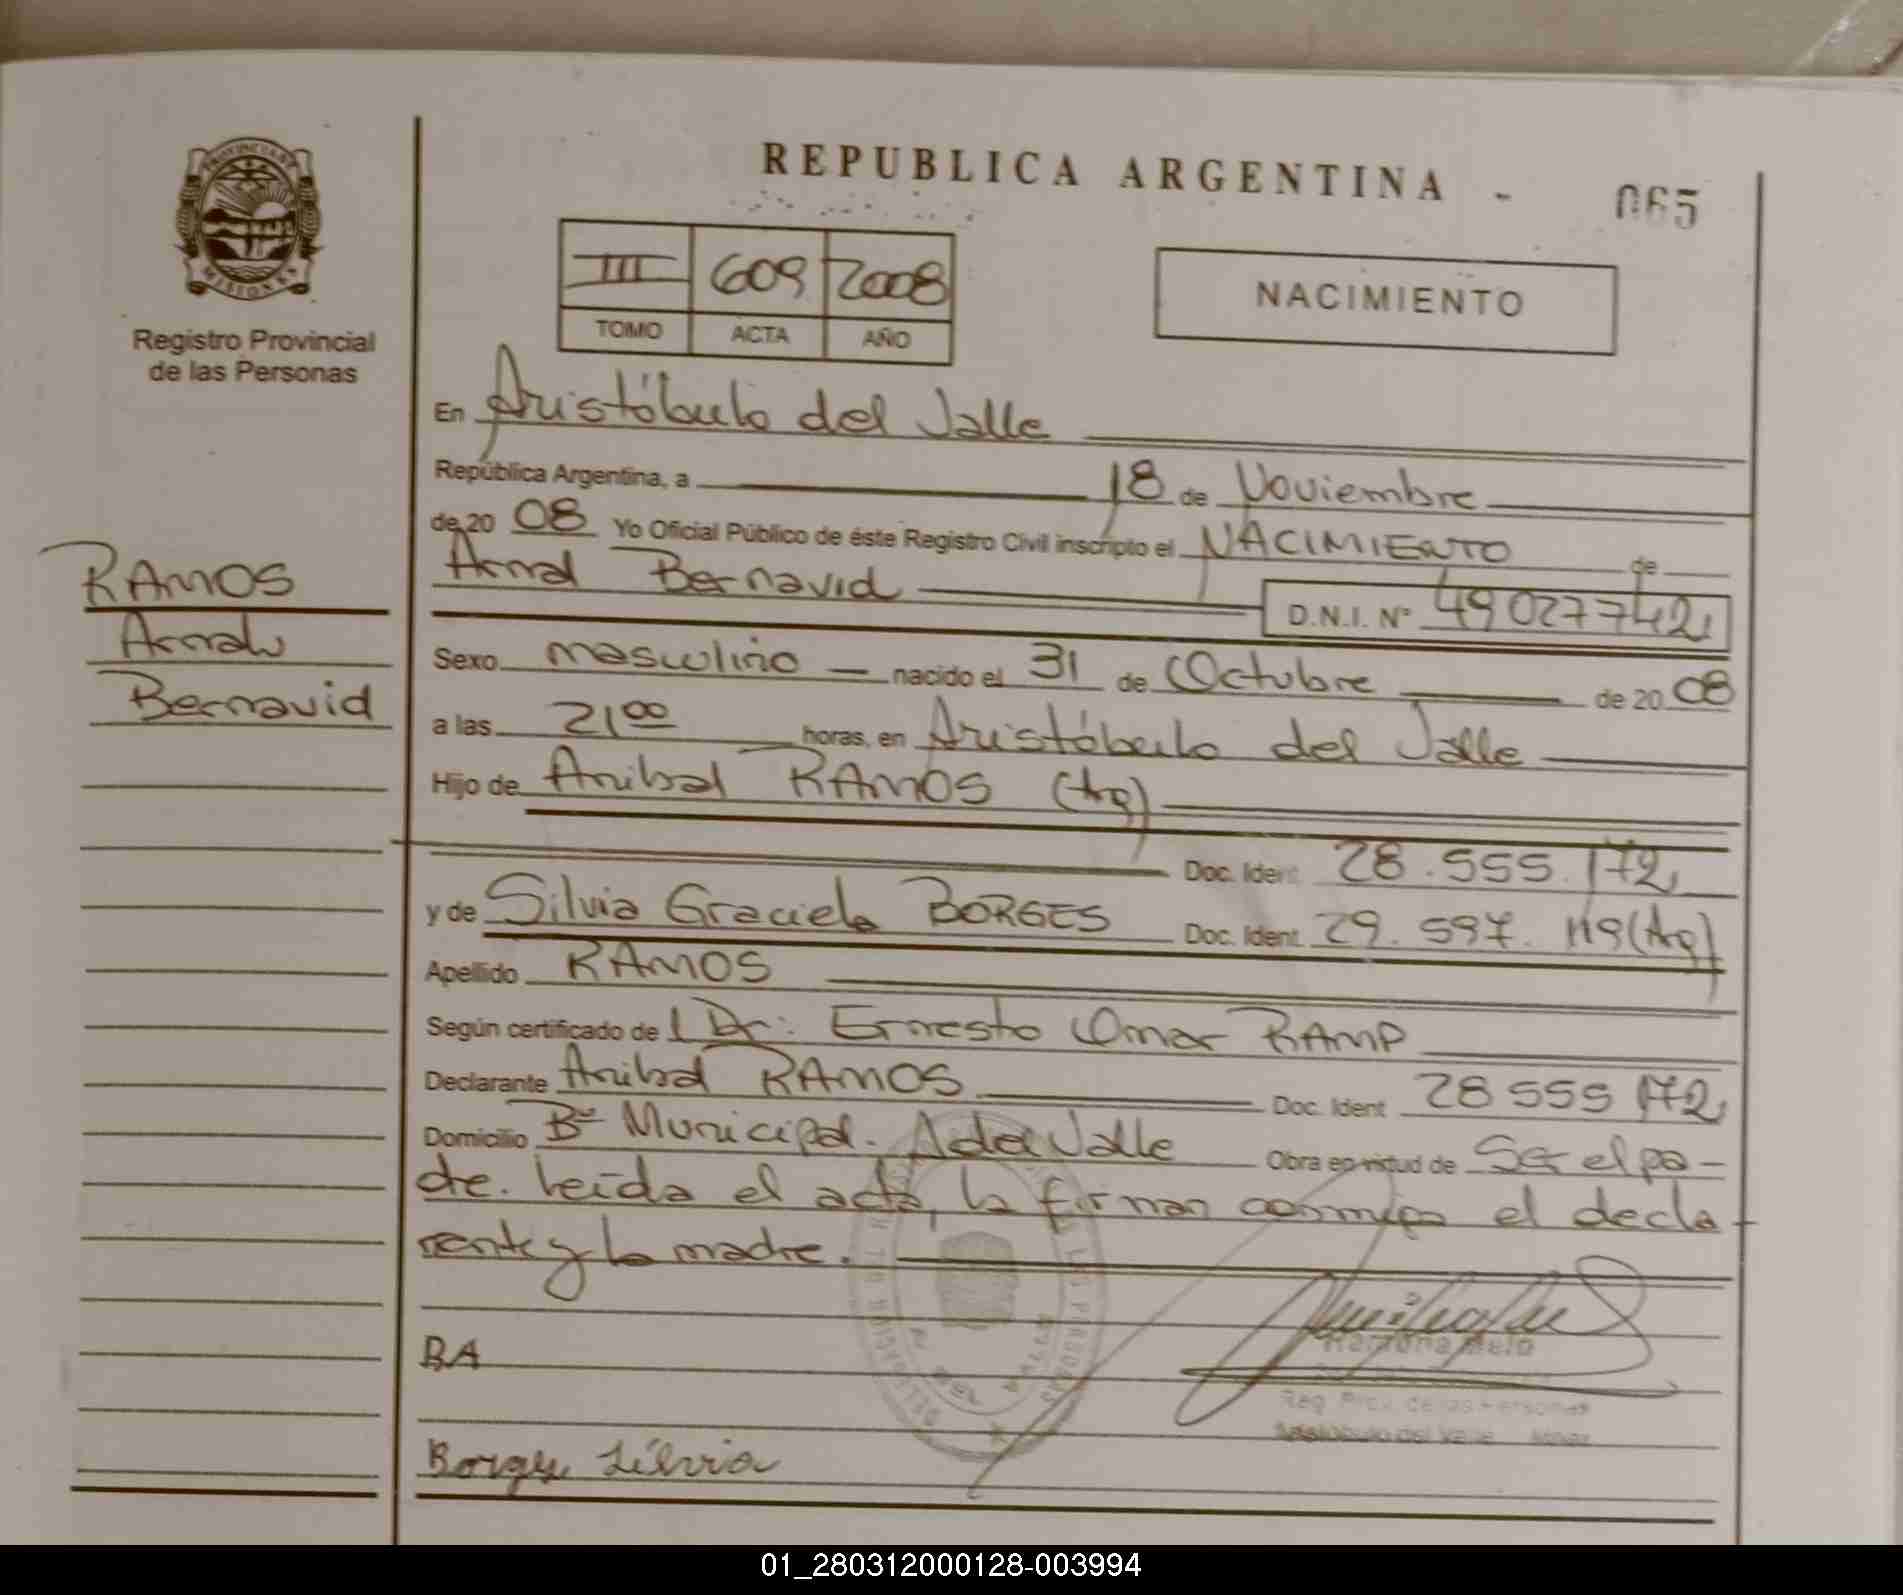 REPUBLICA ARGENTINA -
065
PROVINCIA DE
MISIONES
Registro Provincial
de las Personas
III 609 2008
TOMO ACTA AÑO
NACIMIENTO
En Aristóbulo del Valle
República Argentina, a 18 de Noviembre
de 20 08 Yo Oficial Público de éste Registro Civil inscripto el NACIMIENTO de
Bernavid
D.N.I. Nº 49027742
RAMOS
Bernavid
Sexo masculino nacido el 31 de Octubre de 20 08
a las 21 00 horas, en Aristóbulo del Valle
Hijo de Anibal RAMOS (Arg)
Doc. Ident 28.555.172
y de Silvia Graciela BORGES Doc. Ident. 29.597.119 (Arg)
Apellido RAMOS
Según certificado de Dr: Ernesto Omar RAMP
Declarante Anibal RAMOS Doc. Ident 28555172
Domicilio Bº Municipal. A del Valle Obra en virtud de Ser el pa-
dre. Leída el acta, la firman conmigo el decla-
rante y la madre.
Ramona Melo
RA
Reg. Prov. de las Personas
Aristóbulo del Valle
Borges Silvia
01_280312000128-003994